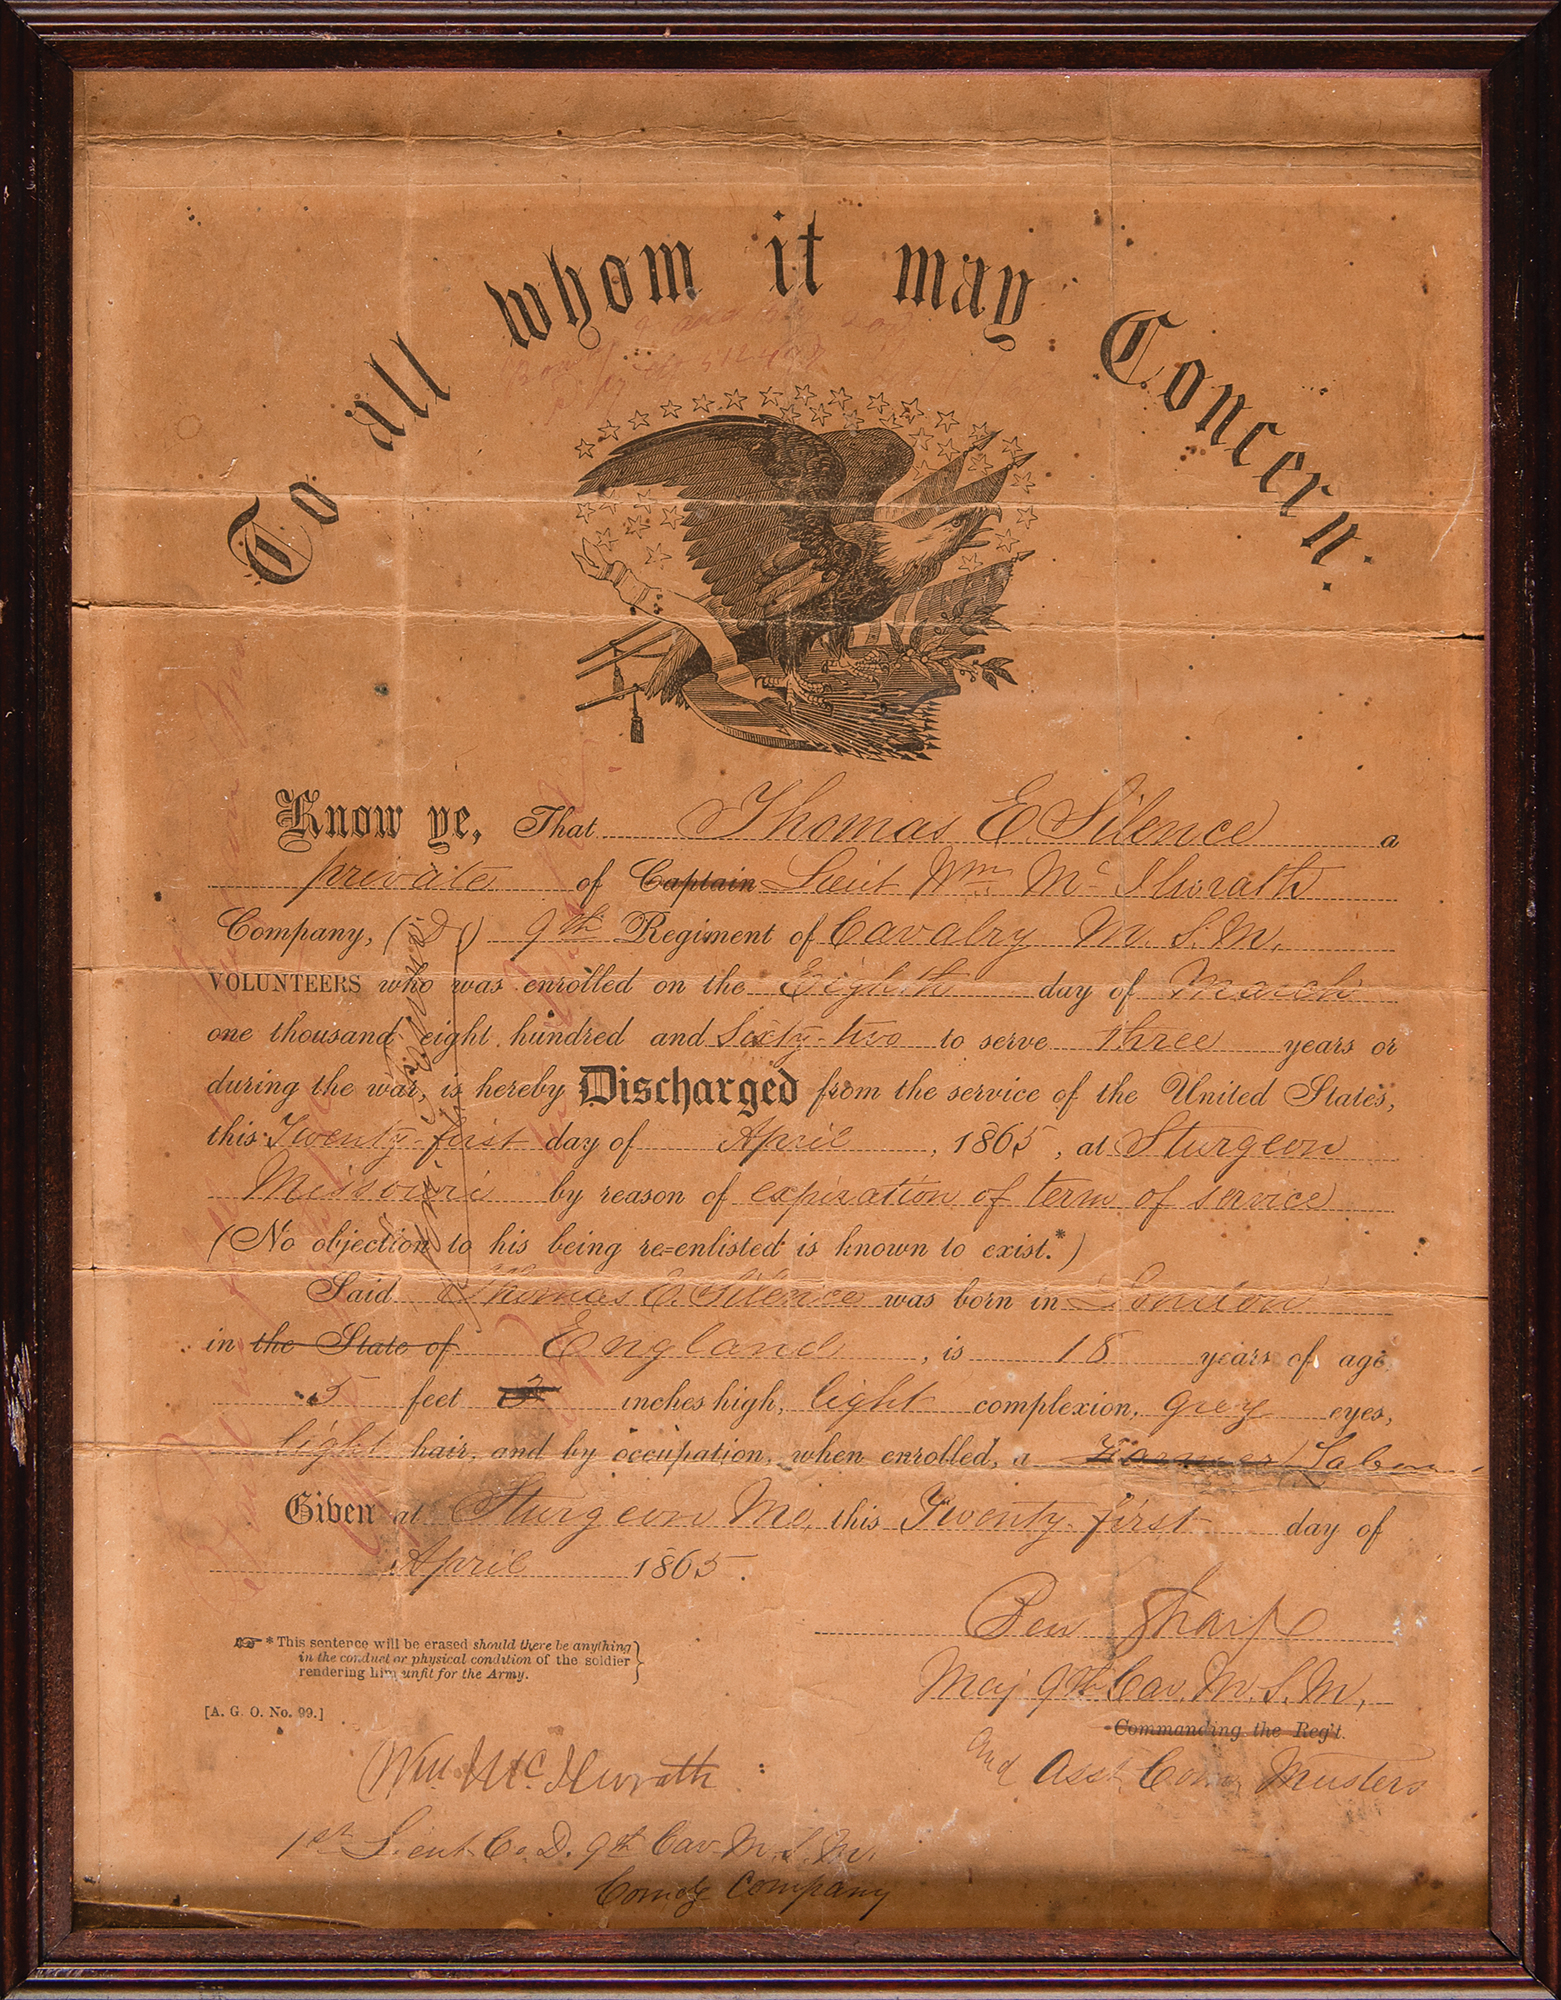 To all whom it may Concern.
Know ye, That Thomas E Silence a
private of Captain Lieut Wm Mc Ilwrath
Company, (D,) 9th Regiment of Cavalry M. S. M.
VOLUNTEERS who was enrolled on the Eighth day of March
one thousand eight hundred and Sixty-two to serve three years or
during the war, is hereby Discharged from the service of the United States,
this Twenty-first day of April, 1865, at Sturgeon
Missouri by reason of expiration of term of service
(No objection to his being re=enlisted is known to exist.*)
Said Thomas E. Silence was born in London
in the State of England, is 18 years of age,
5 feet 3 inches high, light complexion, grey eyes,
light hair, and by occupation, when enrolled, a Farmer
Given at Sturgeon Mo, this Twenty-first day of
April 1865.
Ben Sharp
Maj 9th Cav. M. S. M.
Commanding the Reg't.
and Asst Musters
* This sentence will be erased should there be anything
in the conduct or physical condition of the soldier
rendering him unfit for the Army.
[A. G. O. No. 99.]
Wm Mc Ilwrath
1st Lieut Co. D. 9th Cav M. S. M.
Comdg Company